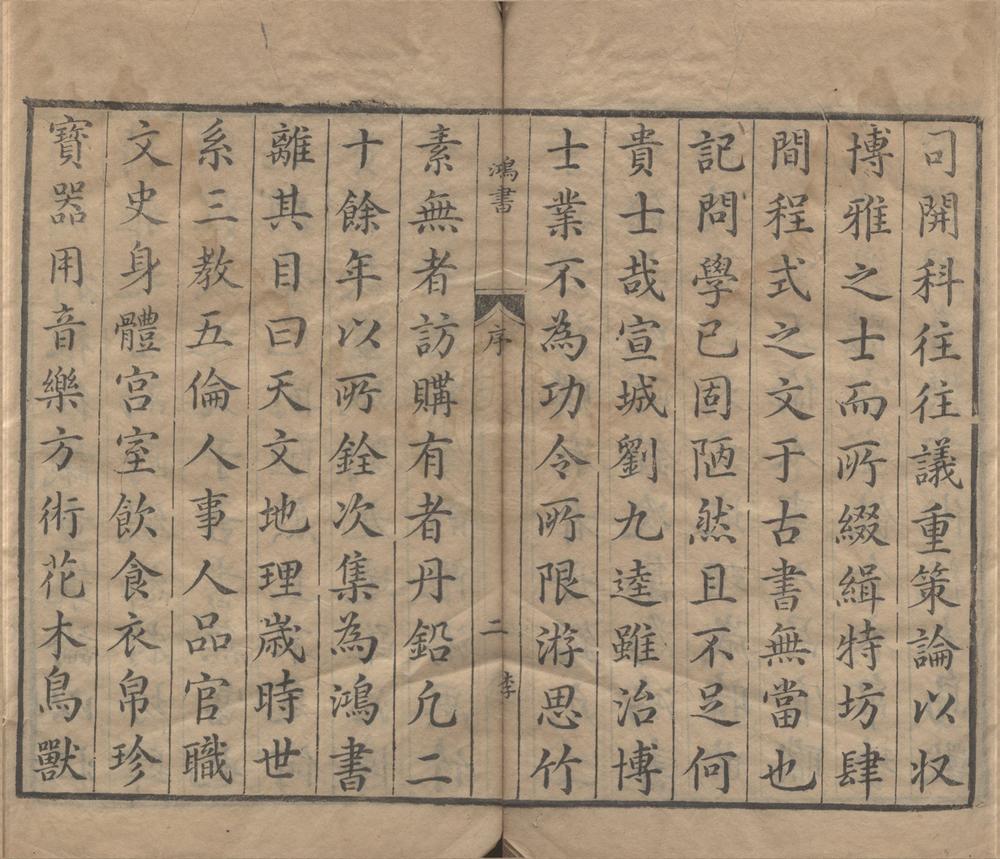 司開科往往議重策論以収
博雅之士而所綴緝特坊肆
間程式之文于古書無當也
記問學已固陋然且不足何
貴士哉宣城劉九逵雖治博
士業不為功令所限游思竹
鴻書
序
二
李
素無者訪購有者丹鉛凡二
十餘年以所銓次集為鴻書
離其目曰天文地理歲時世
系三教五倫人事人品官職
文史身體宮室飲食衣帛珍
寶器用音樂方術花木鳥獸